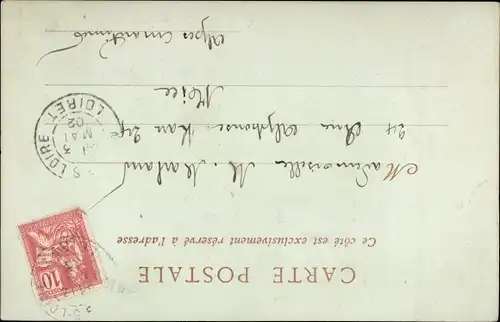 CARTE POSTALE
Ce côté est exclusivement réservé à l'adresse
Mademoiselle M.
24 Rue Alphonse Karr 24
Nice
Alpes Maritimes
LOIRET
3
MAI
02
10